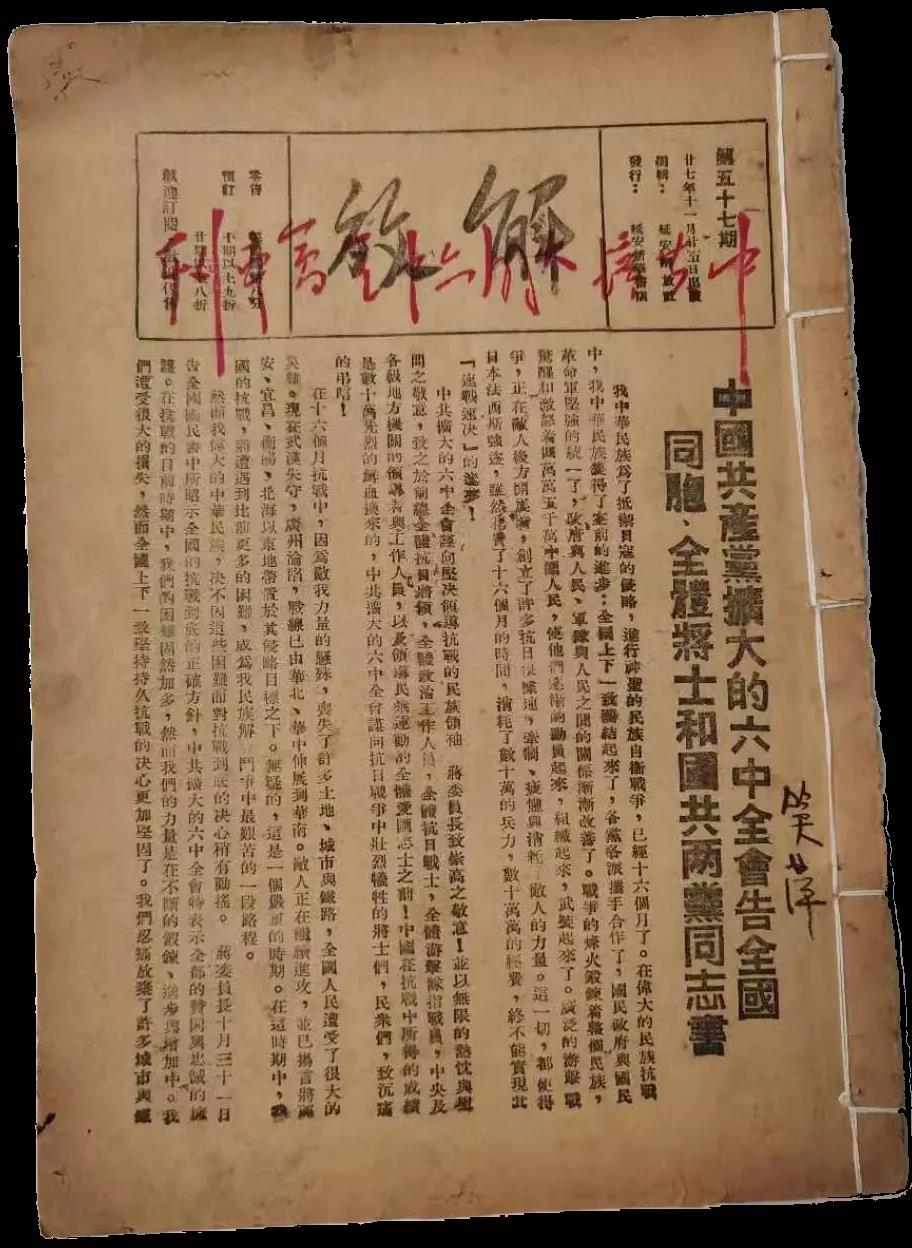 第五十七期
廿七年十一月廿五日出版
編輯：延安解放社
發行：延安新華書店
解放
中共擴大的六中全會專刊
零售
預訂
十期以上九折
廿期以上八折
歡迎訂閱
中國共產黨擴大的六中全會告全國
同胞、全體將士和國共两黨同志書
我中華民族爲了抵禦日寇的侵略，進行神聖的民族自衛戰爭，已經十六個月了。在偉大的民族抗戰
中，我中華民族獲得了空前的進步：全國上下一致團結起來了，各黨各派攜手合作了，國民政府與國民
革命軍堅強的統一了，政府與人民、軍隊與人民之間的關係漸漸改善了。戰爭的烽火鍛鍊着整個民族，
驚醒和激怒着四萬萬五千萬中國人民，使他們逐漸的動員起來，組織起來，武裝起來了。廣泛的游擊戰
爭，正在敵人後方開展着，創立了許多抗日根據地，牽制、疲憊與消耗了敵人的力量。這一切，都使得
日本法西斯強盜，雖然花費了十六個月的時間，消耗了數十萬的兵力，數十萬萬的經費，終不能實現其
「速戰速决」的迷夢！
中共擴大的六中全會謹向堅决領導抗戰的民族領袖　蔣委員長致崇高之敬意！並以無限的熱忱與慰
問之敬意，致之於前綫全體抗日將領，全體政治工作人員，全體抗日戰士，全體游擊隊指戰員，中央及
各級地方機關的領導者與工作人員，以及領導民衆運動的全體愛國志士之前！中國在抗戰中所得的成績
是數十萬先烈的鮮血換來的，中共擴大的六中全會謹向抗日戰爭中壯烈犧牲的將士們，民衆們，致沉痛
的弔唁！
在十六個月抗戰中，因爲敵我力量的懸殊，喪失了許多土地、城市與鐵路，全國人民遭受了很大的
災難。現在武漢失守，廣州淪陷，戰綫已由華北、華中伸展到華南。敵人正在繼續進攻，並已揚言將西
安、宜昌、衡陽、北海以東地帶置於其侵略目標之下。無疑的，這是一個嚴重的時期。在這時期中，我
國的抗戰，將遭遇到比前更多的困難，成爲我民族解放鬥爭中最艱苦的一段路程。
然而我偉大的中華民族，决不因這些困難而對抗戰到底的决心稍有動搖。　蔣委員長十月三十一日
告全國國民書中所昭示全國的抗戰到底的正確方針，中共擴大的六中全會特表示全部的贊同與忠誠的擁
護。在抗戰的目前時期中，我們的困難固然加多，然而我們的力量是在不斷的鍛鍊、進步與增加中。我
們遭受很大的損失，然而全國上下一致堅持持久抗戰的决心更加堅固了。我們忍痛放棄了許多城市與鐵